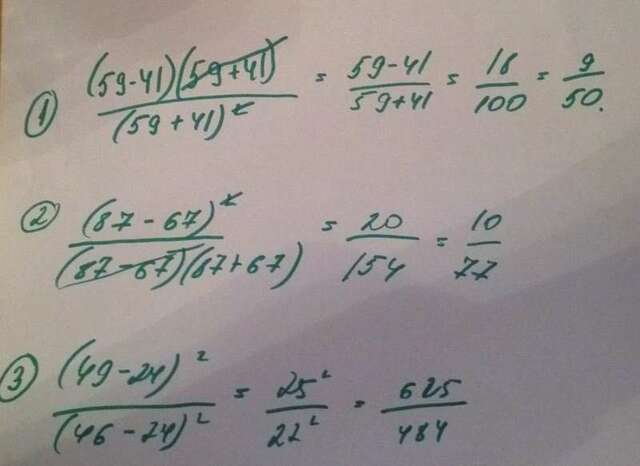 ① (59-41)(59+41) / (59+41)² = 59-41 / 59+41 = 18/100 = 9/50.
② (87-67)² / (87-67)(87+67) = 20/154 = 10/77
③ (49-24)² / (46-24)² = 25²/22² = 625/484